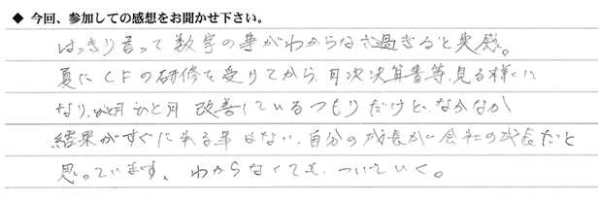 ◆ 今回、参加しての感想をお聞かせ下さい。
はっきり言って数字の事がわからなす過ぎると実感。
夏にCFの研修を受けてから、月次決算書等、見る様に
なり、ひと月 改善しているつもりだけど、なかなか
結果がすぐに来る事はない、自分の成長が会社の成長だと
思っています、わからなくても、ついていく。